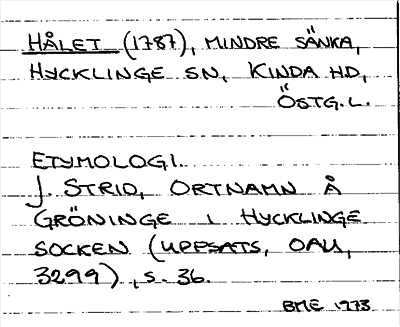 HÅLET (1787), MINDRE SÄNKA,
HYCKLINGE SN, KINDA HD,
ÖSTG.L.
ETYMOLOGI.
J. STRID, ORTNAMN Å
GRÖNINGE I HYCKLINGE
SOCKEN (UPPSATS, OAU,
3299), S. 36.
BME 1973